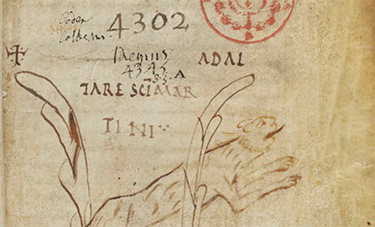 Codex
Colbert.
4302
Regius
4345
A
ADAL
TARE SCI MAR
TINI